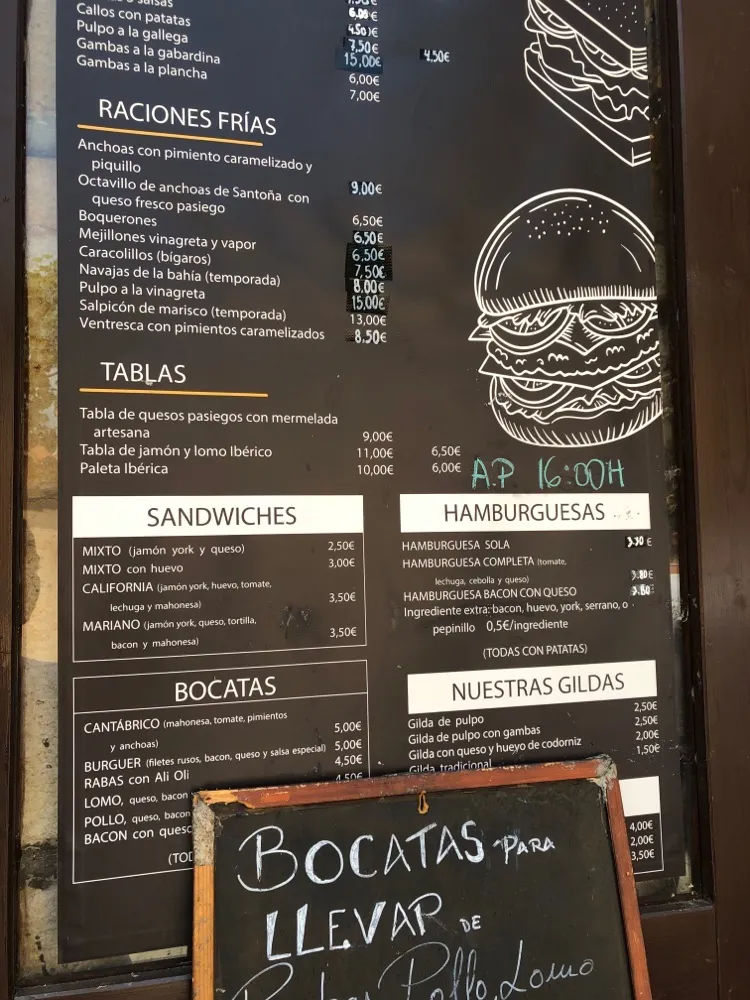 salsas
6.00€
4.50€
Callos con patatas 7,50€
Pulpo a la gallega 15,00€ 4.50€
Gambas a la gabardina 6,00€
Gambas a la plancha 7,00€
RACIONES FRÍAS
Anchoas con pimiento caramelizado y
piquillo 9.00€
Octavillo de anchoas de Santoña con
queso fresco pasiego 6,50€
Boquerones 6,50€
Mejillones vinagreta y vapor 6,50€
Caracolillos (bígaros) 7,50€
Navajas de la bahía (temporada) 8.00€
Pulpo a la vinagreta 15,00€
Salpicón de marisco (temporada) 13,00€
Ventresca con pimientos caramelizados 8.50€
TABLAS
Tabla de quesos pasiegos con mermelada
artesana 9,00€
Tabla de jamón y lomo Ibérico 11,00€ 6,50€
Paleta Ibérica 10,00€ 6,00€
A.P. 16:00H
SANDWICHES
MIXTO (jamón york y queso) 2,50€
MIXTO con huevo 3,00€
CALIFORNIA (jamón york, huevo, tomate,
lechuga y mahonesa) 3,50€
MARIANO (jamón york, queso, tortilla,
bacon y mahonesa) 3,50€
BOCATAS
CANTÁBRICO (mahonesa, tomate, pimientos
y anchoas) 5,00€
BURGUER (filetes rusos, bacon, queso y salsa especial) 5,00€
RABAS con Ali Oli 4,50€
LOMO, queso, bacon 4,50€
POLLO, queso, bacon
BACON con queso
HAMBURGUESAS
HAMBURGUESA SOLA 3.30€
HAMBURGUESA COMPLETA (tomate,
lechuga, cebolla y queso) 3.80€
HAMBURGUESA BACON CON QUESO 3.80€
Ingrediente extra: bacon, huevo, york, serrano, o
pepinillo 0,5€/ingrediente
(TODAS CON PATATAS)
NUESTRAS GILDAS
Gilda de pulpo 2,50€
Gilda de pulpo con gambas 2,50€
Gilda con queso y huevo de codorniz 2,00€
Gilda tradicional 1,50€
4,00€
2,00€
3,50€
BOCATAS PARA
LLEVAR DE
Pollo, Lomo